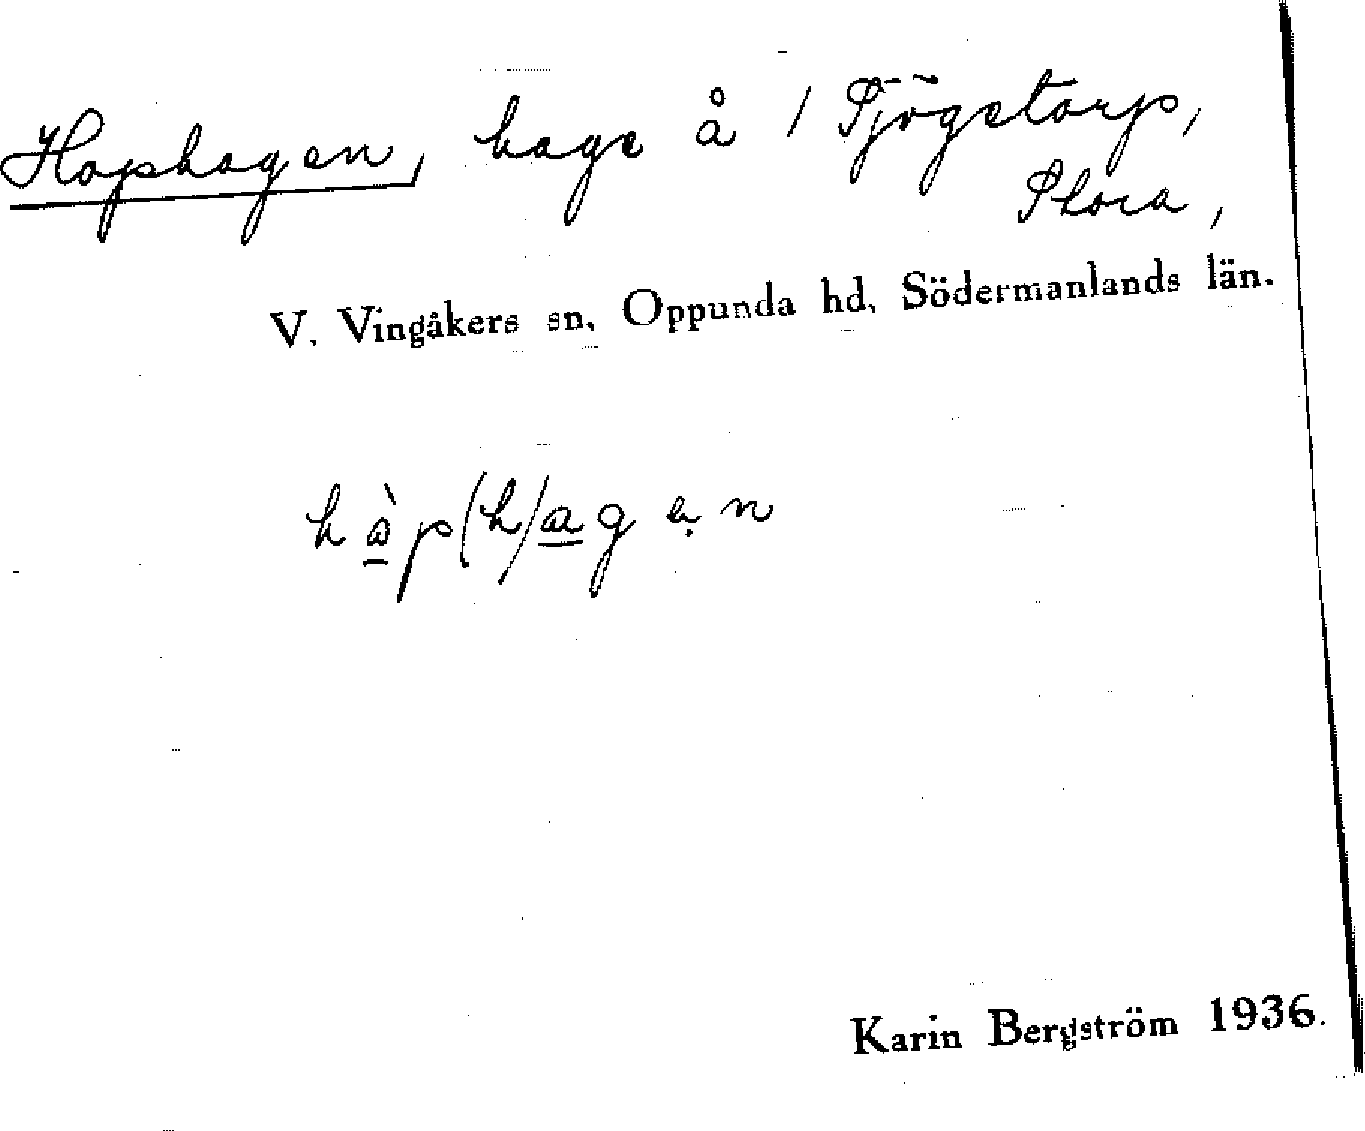 Hophagen, hage å / Tjögetorp,
Stora,
V. Vingåkers sn, Oppunda hd, Södermanlands län.
hàp(h)agen
Karin Bergström 1936.